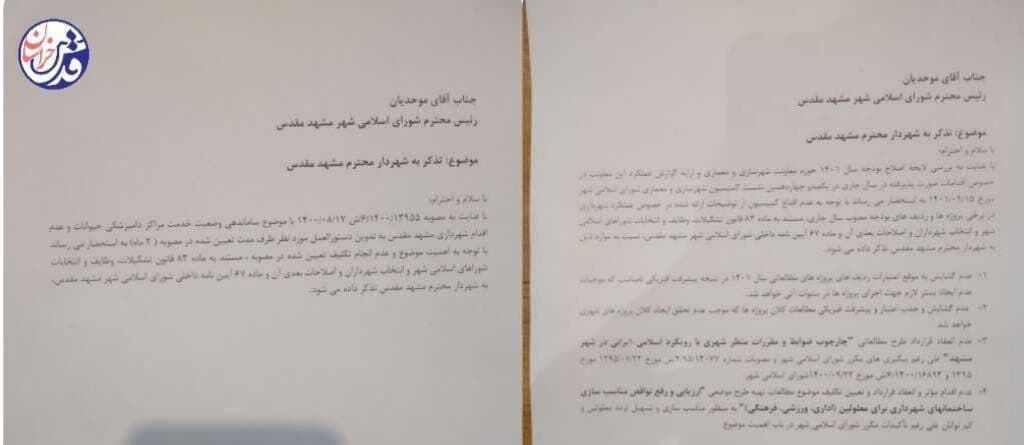 قدس
خراسان
جناب آقای موحدیان
رئیس محترم شورای اسلامی شهر مشهد مقدس
موضوع: تذکر به شهردار محترم مشهد مقدس
با سلام و احترام؛
با عنایت به بررسی لایحه اصلاح بودجه سال ۱۴۰۱ حوزه معاونت شهرسازی و معماری و ارایه گزارش عملکرد این معاونت در
خصوص اقدامات صورت پذیرفته در سال جاری در یکصدو چهاردهمین نشست کمیسیون شهرسازی و معماری شورای اسلامی شهر
مورخ ۱۴۰۱/۰۹/۱۵ به استحضار می رساند با توجه به عدم اقناع کمیسیون از توضیحات ارائه شده در خصوص عملکرد شهرداری
در برخی پروژه ها و ردیف های بودجه مصوب سال جاری، مستند به ماده ۸۳ قانون تشکیلات، وظایف و انتخابات شوراهای اسلامی
شهر و انتخاب شهرداران و اصلاحات بعدی آن و ماده ۶۷ آیین نامه داخلی شورای اسلامی شهر مشهد مقدس، نسبت به موارد ذیل
به شهردار محترم مشهد مقدس تذکر داده می شود.
۱- عدم گشایش به موقع اعتبارات ردیف های پروژه های مطالعاتی سال ۱۴۰۱ در نتیجه پیشرفت فیزیکی نامناسب که موجبات
عدم ایجاد بستر لازم جهت اجرای پروژه ها در سنوات آتی خواهد شد.
۲- عدم گشایش و جذب اعتبار و پیشرفت فیزیکی مطالعات کلان پروژه ها که موجب عدم تحقق ایجاد کلان پروژه های شهری
خواهد شد.
۳- عدم انعقاد قرارداد طرح مطالعاتی "چارچوب ضوابط و مقررات منظر شهری با رویکرد اسلامی-ایرانی در شهر
مشهد" علی رغم پیگیری های مکرر شورای اسلامی شهر و مصوبات شماره ۴/۹۵/۱۳۰۷۷/ش مورخ ۱۳۹۵/۰۷/۲۲ مورخ
۱۳۹۵ و ۶/۱۴۰۰/۱۶۸۹۳/ش مورخ ۱۴۰۰/۰۹/۲۲ شورای اسلامی شهر.
۴- عدم اقدام مؤثر و انعقاد قرارداد و تعیین تکلیف موضوع مطالعات تهیه طرح موضعی "ارزیابی و رفع نواقص مناسب سازی
ساختمانهای شهرداری برای معلولین (اداری، ورزشی، فرهنگی)" به منظور مناسب سازی و تسهیل تردد معلولین و
کم توانان علی رغم تأکیدات مکرر شورای اسلامی شهر در باب اهمیت موضوع.
جناب آقای موحدیان
رئیس محترم شورای اسلامی شهر مشهد مقدس
موضوع: تذکر به شهردار محترم مشهد مقدس
با سلام و احترام؛
با عنایت به مصوبه ۶/۱۴۰۰/۱۳۹۵۵/ش ۱۴۰۰/۰۸/۱۷ با موضوع ساماندهی وضعیت خدمت مراکز دامپزشکی حیوانات و عدم
اقدام شهرداری مشهد مقدس به تدوین دستورالعمل مورد نظر ظرف مدت تعیین شده در مصوبه (۲ ماه) به استحضار می رساند
با توجه به اهمیت موضوع و عدم انجام تکلیف تعیین شده در مصوبه ، مستند به ماده ۸۳ قانون تشکیلات، وظایف و انتخابات
شوراهای اسلامی شهر و انتخاب شهرداران و اصلاحات بعدی آن و ماده ۶۷ آیین نامه داخلی شورای اسلامی شهر مشهد مقدس،
به شهردار محترم مشهد مقدس تذکر داده می شود.